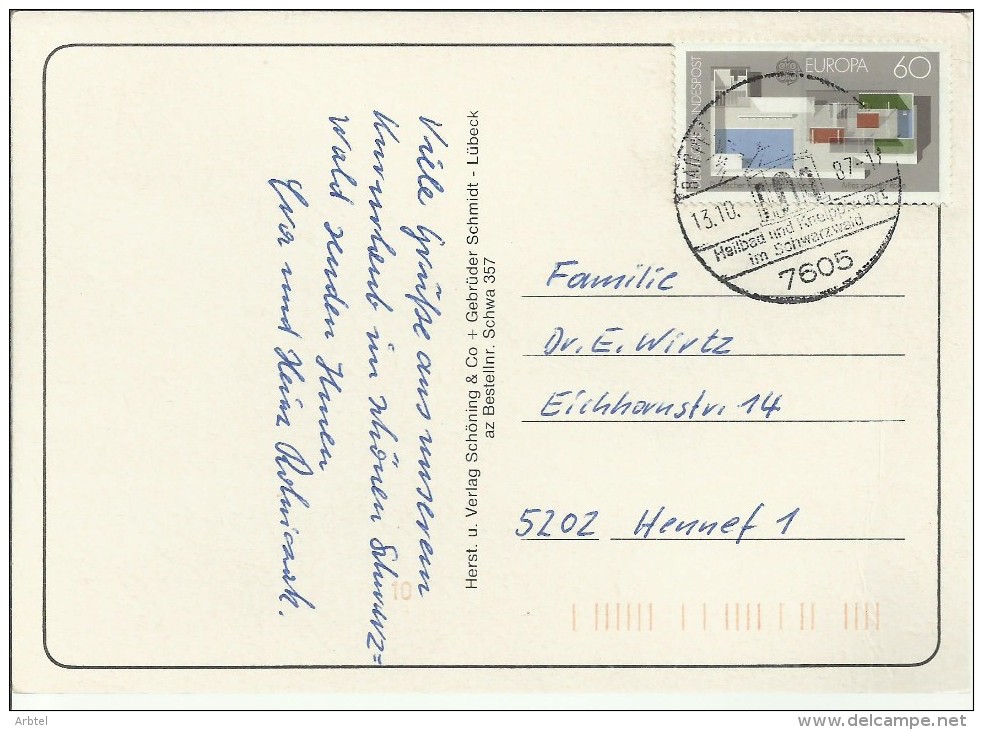 DEUTSCHE BUNDESPOST
EUROPA 60
13.10. 87-17
Heilbad und Kneippkurort
im Schwarzwald
7605
Viele Grüße aus unserem
Kururlaub in schönen Schwarz=
wald senden Ihnen
Eva und Heinz
Herst. u. Verlag Schöning & Co + Gebrüder Schmidt - Lübeck
az Bestellnr. Schwa 357
Familie
Dr. E. Wirtz
Eichhornstr. 14
5202 Hennef 1
10
Arbtel
delcampe.net